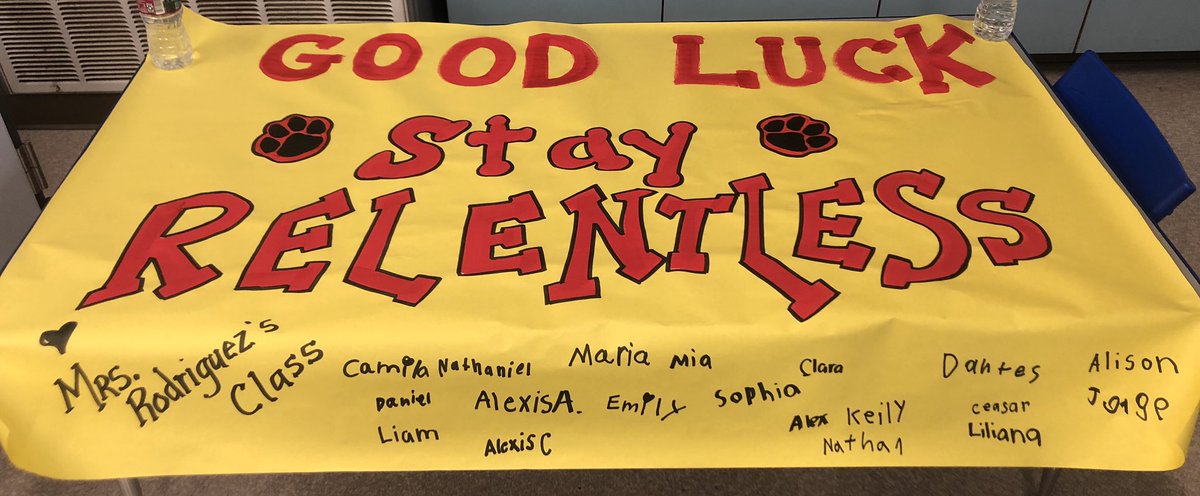 GOOD LUCK
Stay
RELENTLESS
Mrs.
Rodriguez's
Class
Camila Nathaniel Maria Mia Clara Dantes Alison
Daniel AlexisA. Emily Sophia Alex Keily ceasar Jorge
Liam Alexis C Nathan Liliana